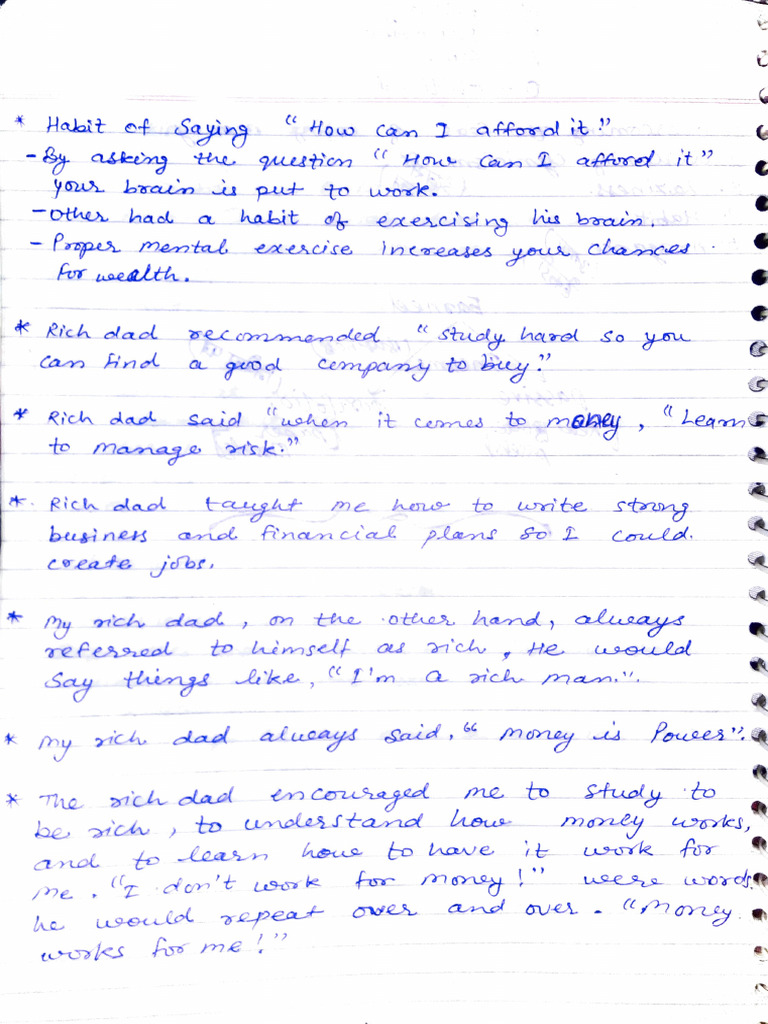 * Habit of Saying "How can I afford it!"
- By asking the question "How can I afford it"
your brain is put to work.
- Other had a habit of exercising his brain.
- Proper mental exercise increases your chances
for wealth.
* Rich dad recommended "study hard so you
can find a good company to buy."
* Rich dad said "when it comes to money, "Learn
to manage risk."
* Rich dad taught me how to write strong
business and financial plans so I could
create jobs.
* My rich dad, on the other hand, always
referred to himself as rich, He would
say things like, "I'm a rich man.".
* My rich dad always said, "Money is Power".
* The rich dad encouraged me to study to
be rich, to understand how money works,
and to learn how to have it work for
me. "I don't work for money!" were words
he would repeat over and over. "Money
works for me!"